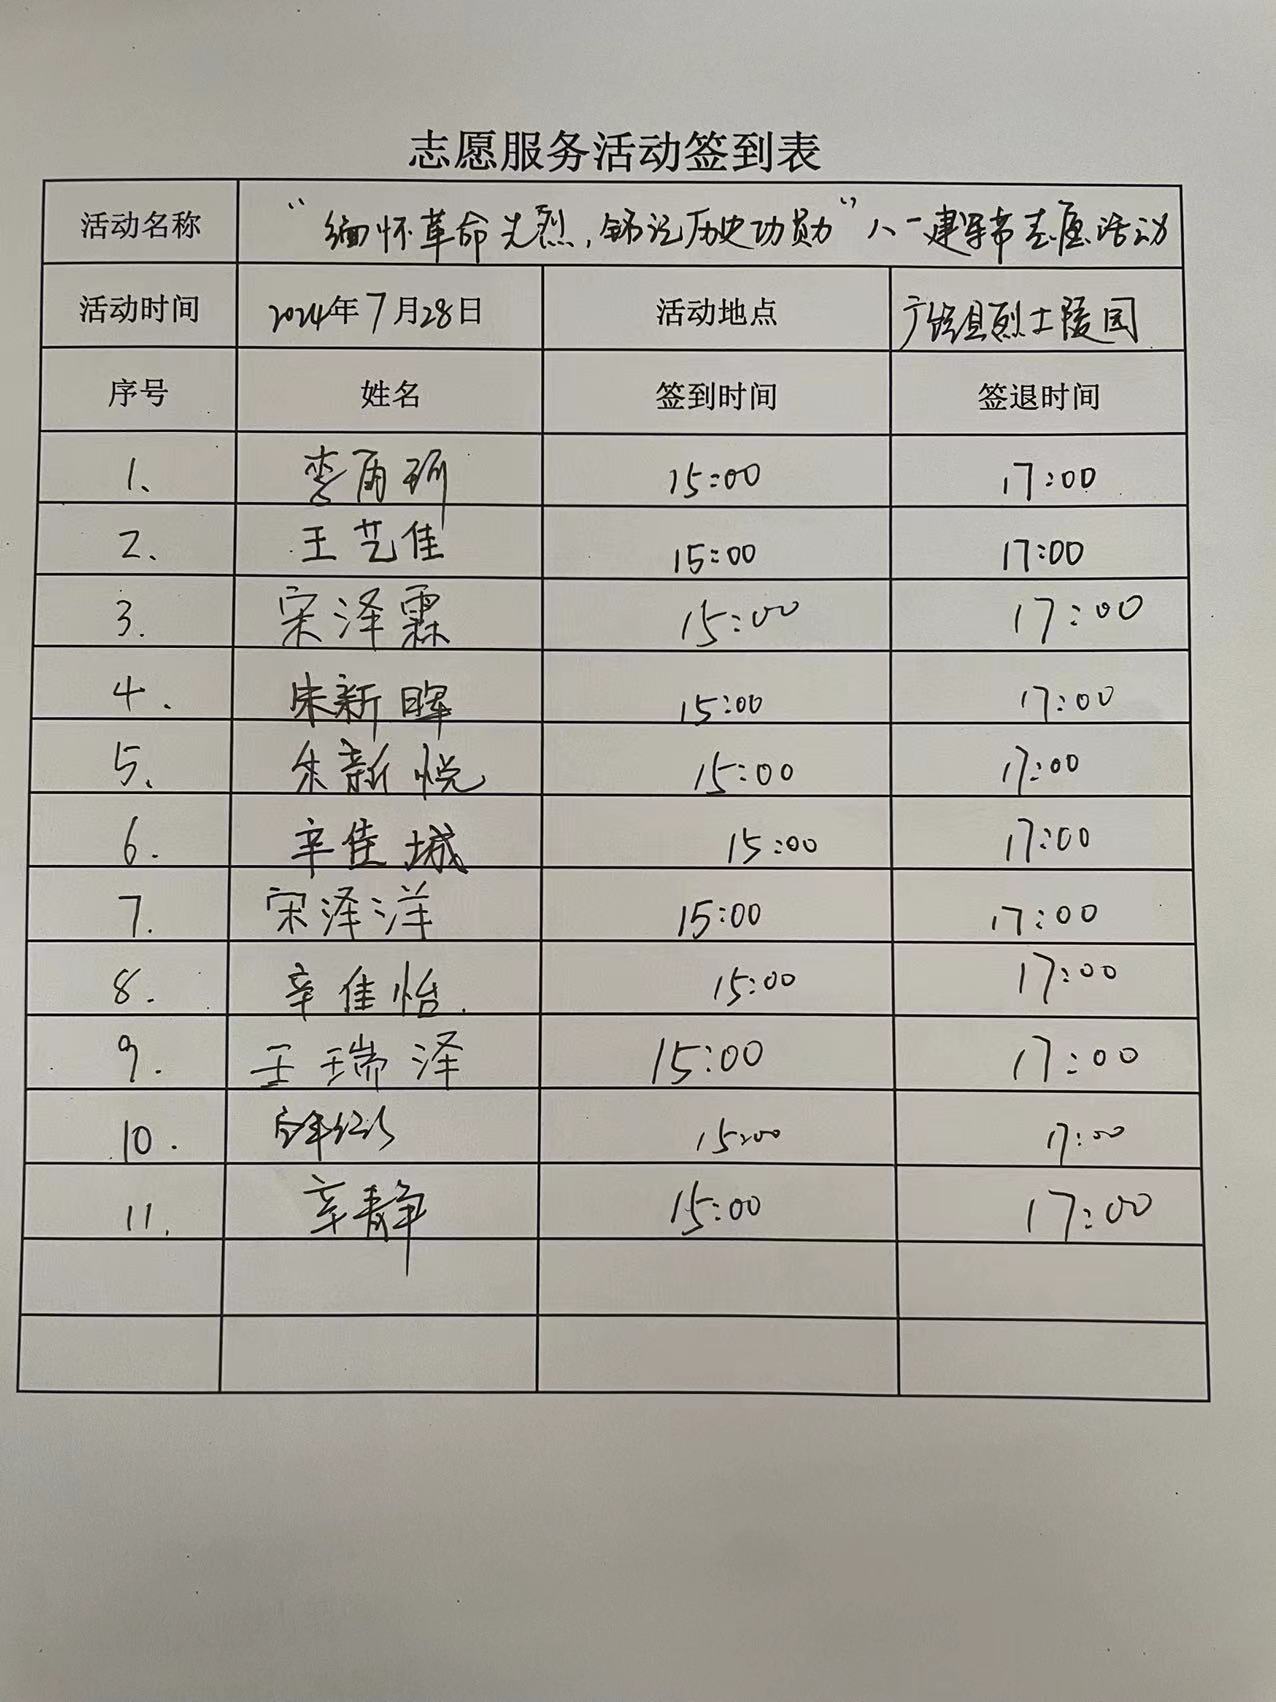 志愿服务活动签到表
活动名称 “缅怀革命先烈，铭记历史功勋”八一建军节志愿活动
活动时间 2024年7月28日 活动地点 广饶县烈士陵园
序号 姓名 签到时间 签退时间
1、 李雨珂 15:00 17:00
2、 王艺佳 15:00 17:00
3. 宋泽霖 15:00 17:00
4. 朱新晖 15:00 17:00
5、 朱新悦 15:00 17:00
6. 辛佳城 15:00 17:00
7. 宋泽洋 15:00 17:00
8. 辛佳怡 15:00 17:00
9. 王瑞泽 15:00 17:00
10. 15:00 17:00
11. 辛静 15:00 17:00